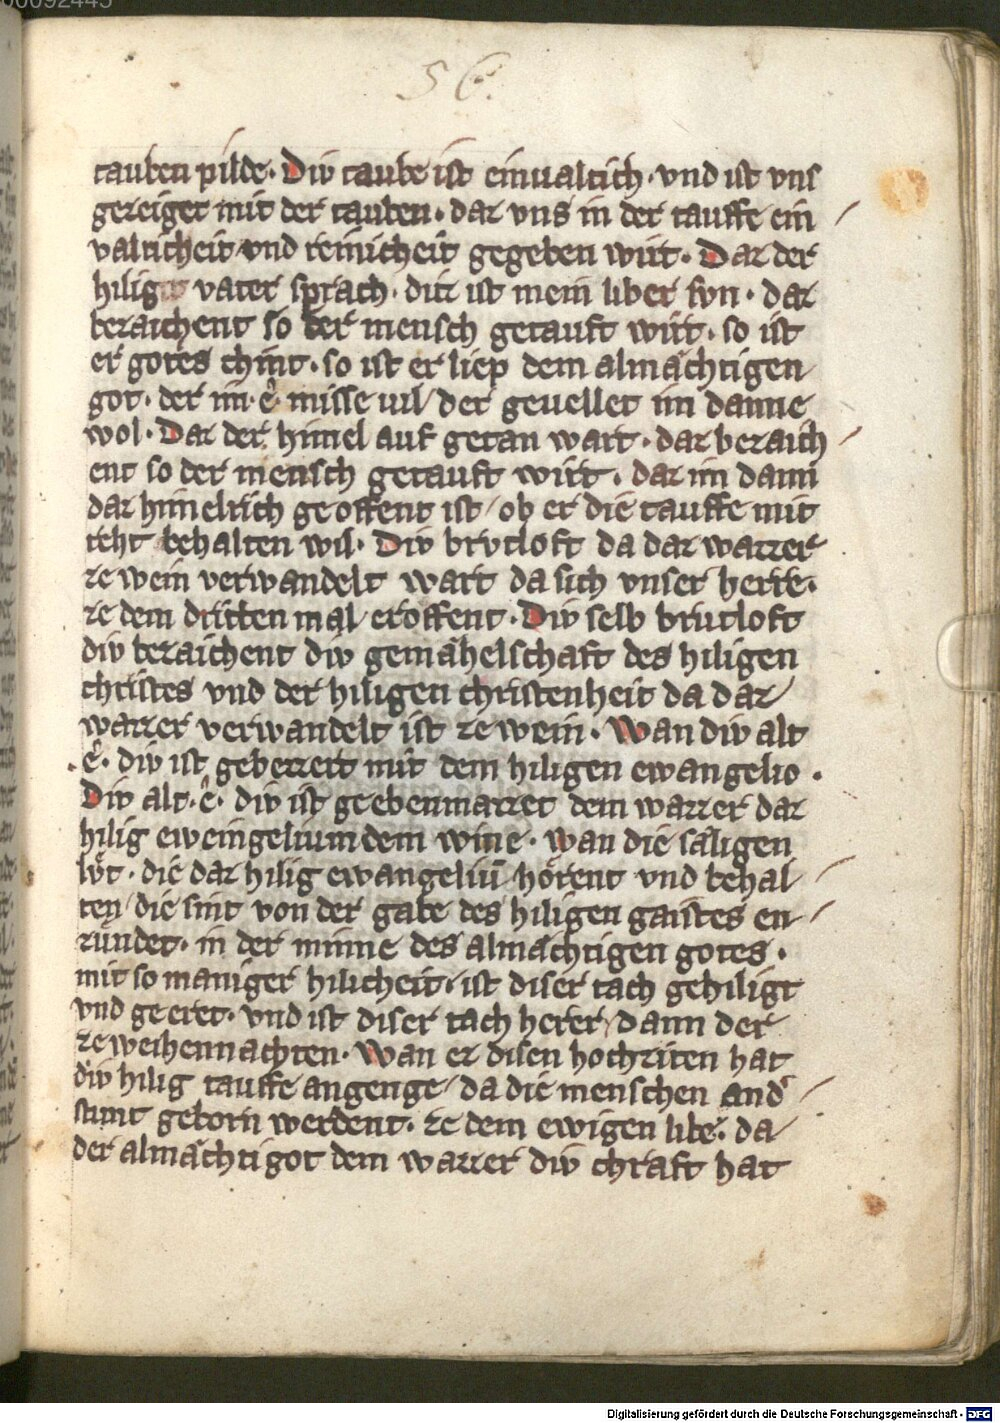 00092445
56.
tauben pilde. Div taube ist einualtich. vnd ist vns
gezeiget mit der tauben. daz vns in der tauffe ein
valticheit vnd reinicheit gegeben wirt. Daz der
hilig vater sprach. ditz ist mein liber svn. daz
bezaichent so der mensch getauft wirt. so ist
er gotes chint. so ist er liep dem almæchtigen
got. der im.ê. misseuil der geuellet im danne
wol. Daz der himel auf getan wart. daz bezaich
ent so der mensch getauft wirt. daz im dann
daz himelrich geoffent ist ob er die tauffe mit
reht behalten wil. Div brvtloft da daz wazzer
ze wein verwandelt wart da sich vnser herre.
ze dem dritten mal eroffent. Div selb brutloft
div bezaichent div gemæhelschaft des hiligen
christes vnd der hiligen christenheit da daz
wazzer verwandelt ist ze wein. Wan div alt
ê. div ist gebezzert mit dem hiligen ewangelio.
Div alt.ê. div ist geebenmazzet dem wazzer daz
hilig eweingelium dem wine. wan die sæligen
lvt. die daz hilig ewangeliū hörent vnd behal
ten die sint von der gabe des hiligen gaistes en
zündet. in der minne des almæchtigen gotes.
mit so maniger hilicheit. ist diser tach gehiligt
vnd geeret. vnd ist diser tach herer dann der
ze weihennachten. Wan er disen hochziten hat
div hilig tauffe angenge da die menschen and̛
stunt geborn werdent. ze dem ewigen libe. da
der almæchti got dem wazzer div chraft hat
Digitalisierung gefördert durch die Deutsche Forschungsgemeinschaft - DFG